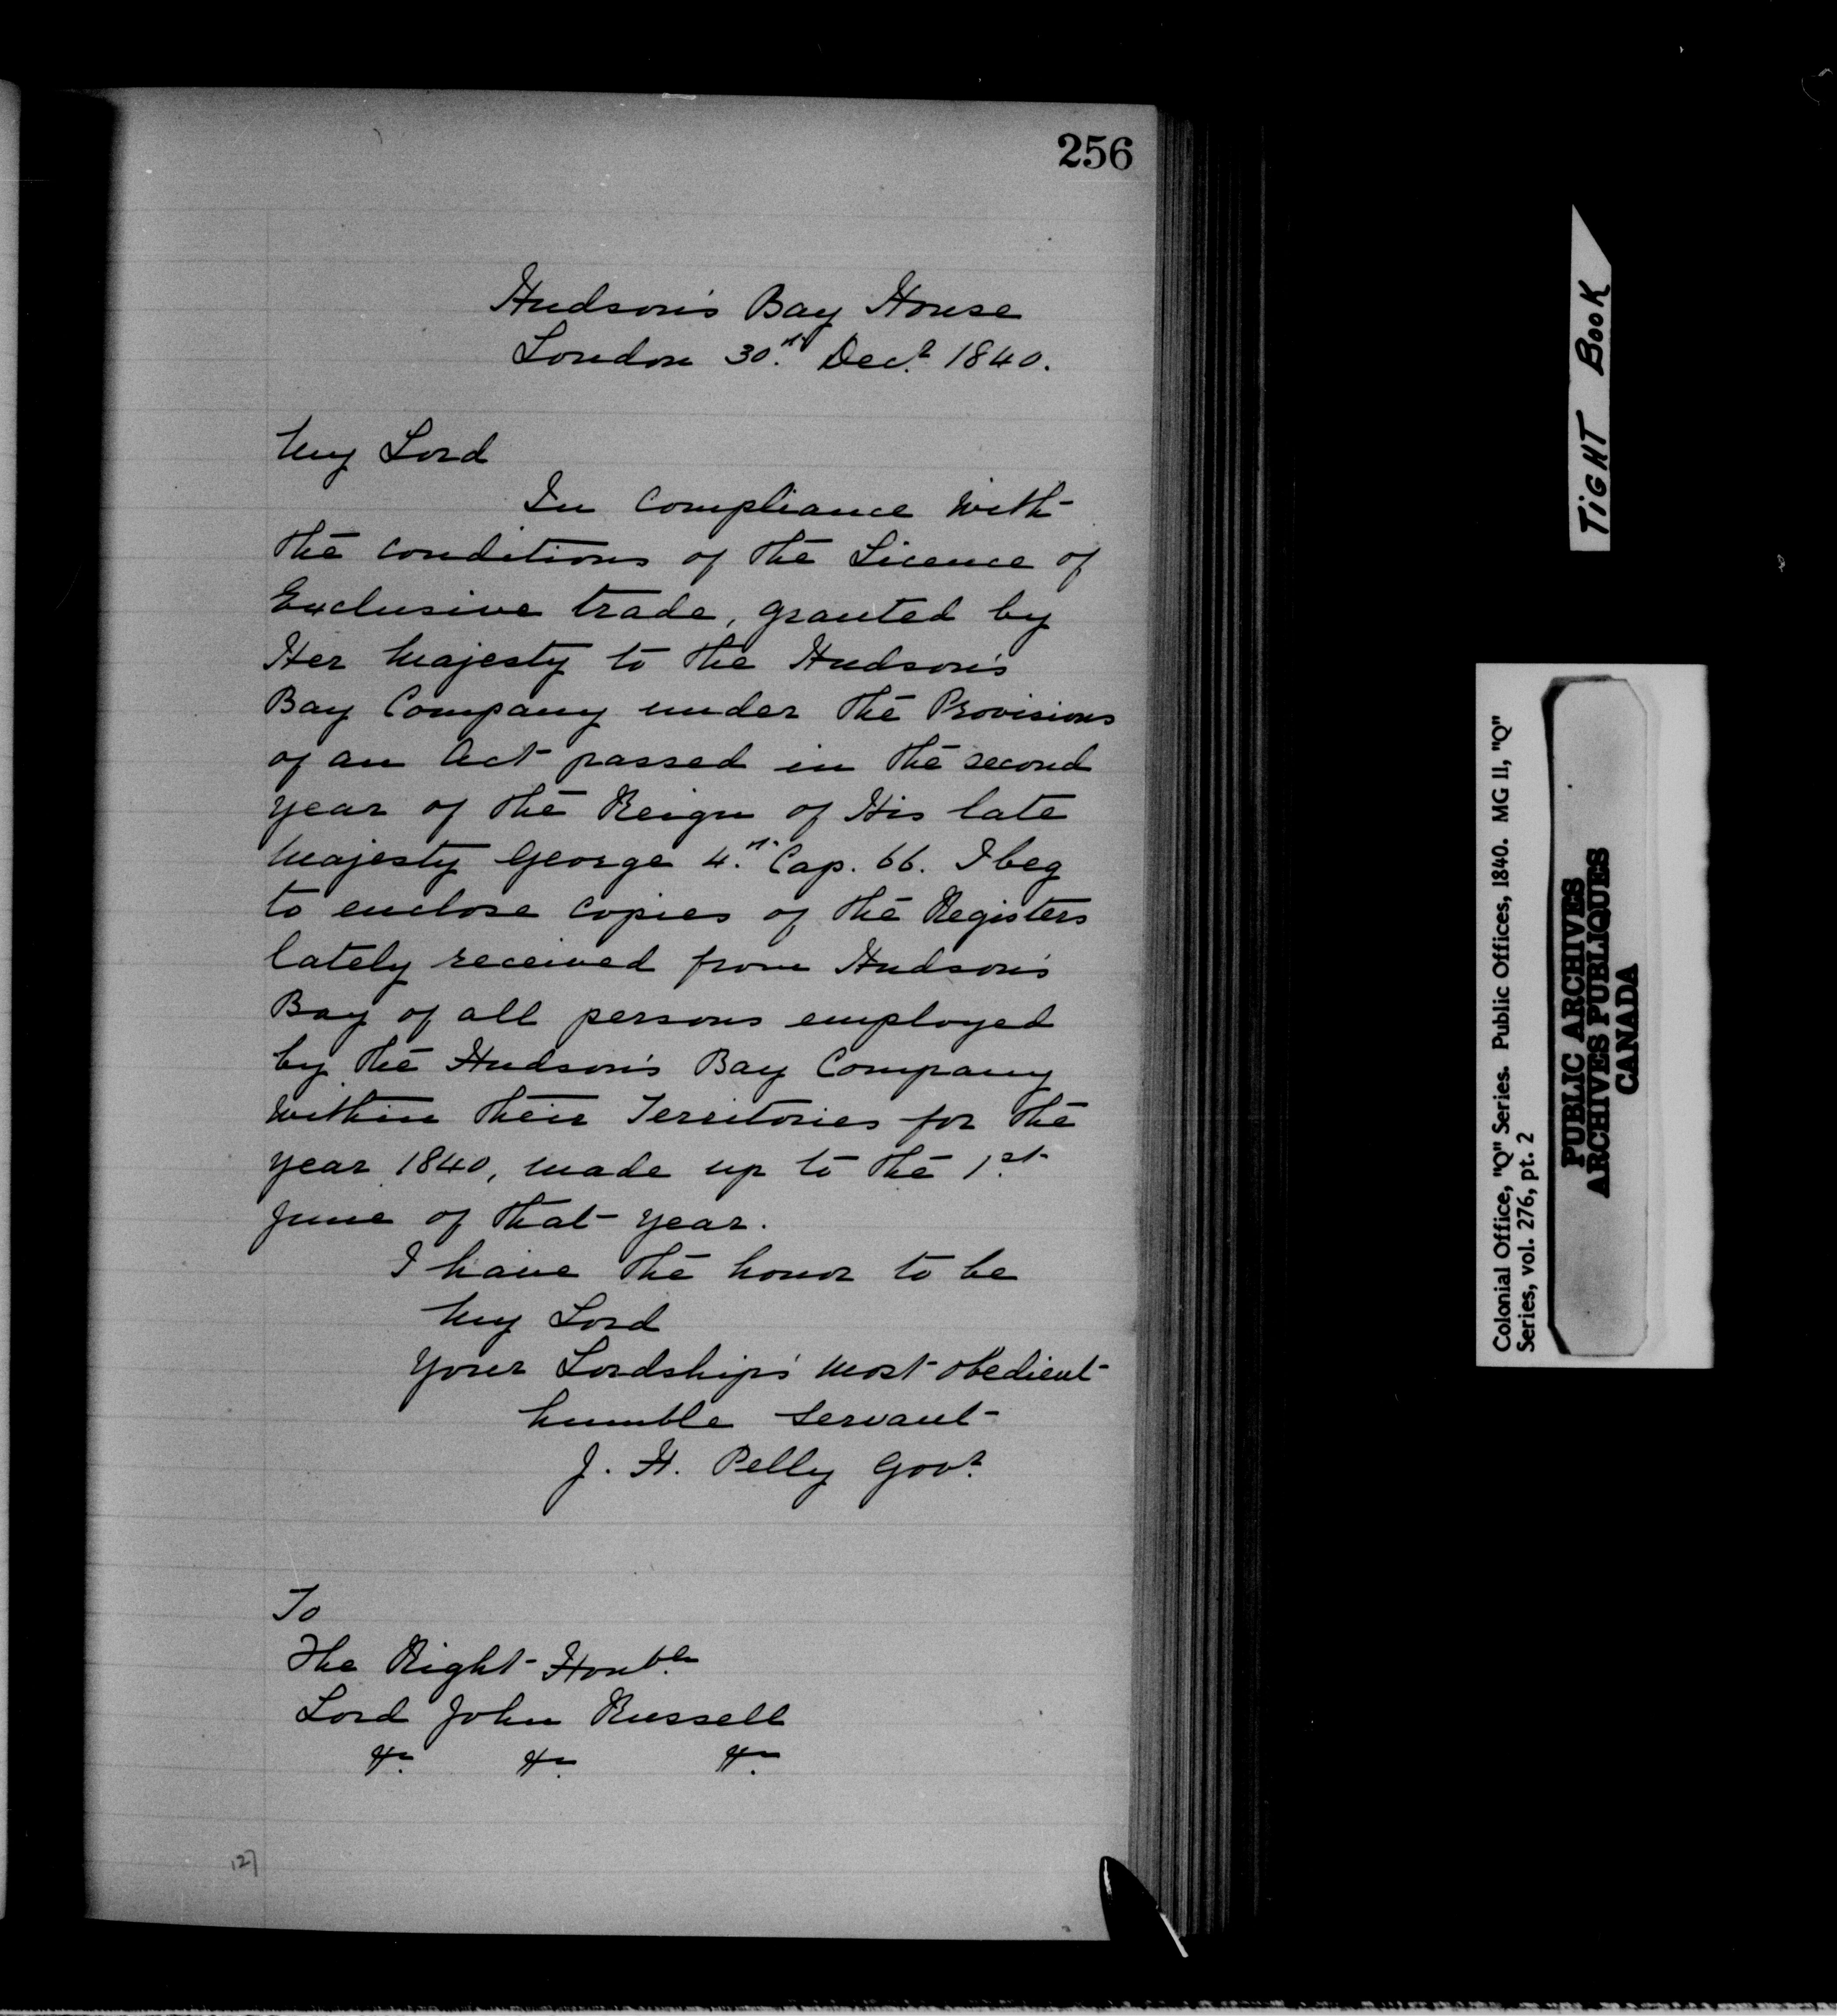 256
Hudson's Bay House
London 30.th Decr. 1840.
My Lord
In compliance with
the conditions of the Licence of
Exclusive trade, granted by
Her Majesty to the Hudson's
Bay Company under the Provisions
of an Act passed in the second
year of the Reign of His late
Majesty George 4.th Cap. 66. I beg
to enclose copies of the Registers
lately received from Hudson's
Bay of all persons employed
by the Hudson's Bay Company
within their Territories for the
year 1840, made up to the 1.st
June of that year.
I have the honor to be
My Lord
Your Lordship's most obedient
humble servant
J. H. Pelly Govr.
To
The Right Honble.
Lord John Russell
&c. &c. &c.
127
TIGHT BOOK
Colonial Office, "Q" Series. Public Offices, 1840. MG 11, "Q"
Series, vol. 276, pt. 2
PUBLIC ARCHIVES
ARCHIVES PUBLIQUES
CANADA